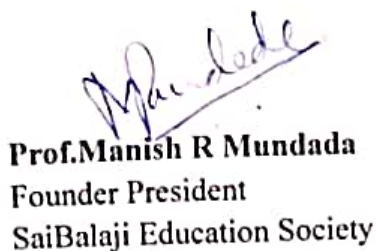 Mundada
Prof.Manish R Mundada
Founder President
SaiBalaji Education Society